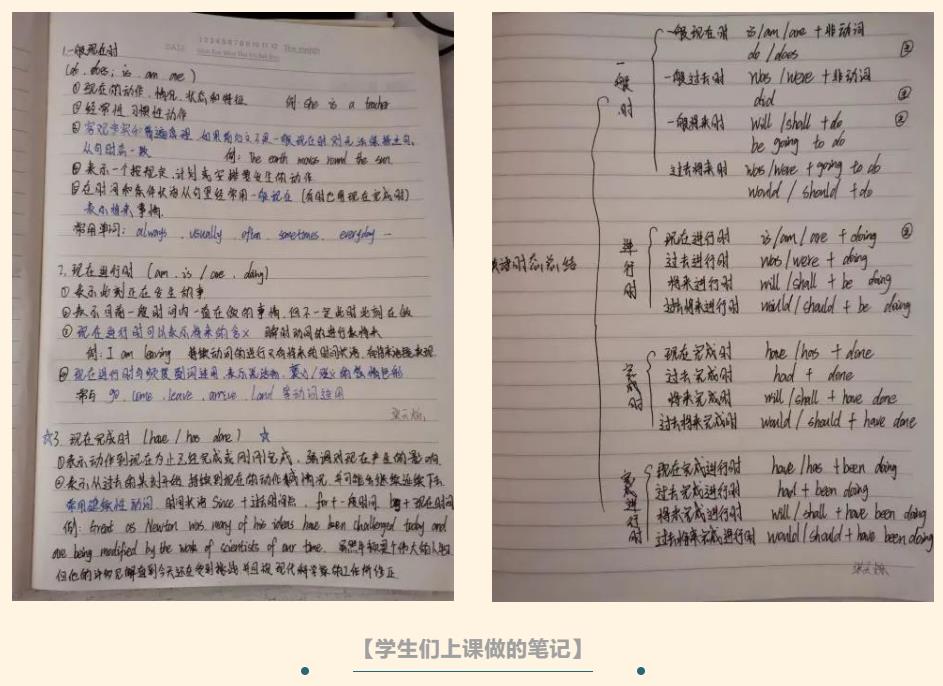 DATE
1 2 3 4 5 6 7 8 9 10 11 12
1.一般现在时
(do, does; is, am, are)
①现在的动作、情况、状态和特征 例: she is a teacher
②经常性、习惯性动作
③客观事实和普遍真理
从句时态一致 例: The earth moves round the sun.
④表示一个按规定、计划或安排要发生的动作
⑤在时间和条件状语从句里经常用一般现在(有时也用现在完成时)
表示将来事情.
常用单词: always, usually, often, sometimes, everyday
2. 现在进行时 (am, is / are, doing)
①表示此刻正在发生的事
②表示目前一段时间内一直在做的事情, 但不一定此时此刻在做
③现在进行时可以表示将来的含义 瞬时动词的进行表将来
例: I am leaving
④现在进行时与频度副词连用
常与 go, come, leave, arrive, land 等动词连用
☆3. 现在完成时 (have / has done) ☆
①表示动作到现在为止已经完成或刚刚完成, 强调对现在产生的影响
②表示从过去的某刻开始, 持续到现在的动作或情况, 并可能会继续延续下去
常用延续性动词 时间状语 Since + 过去时间点, for + 一段时间
例: Great as Newton was, many of his ideas have been challenged today and
are being modified by the work of scientists of our time.
时态总结
一般时
一般现在时 is/am/are + 非动词
do/does
一般过去时 was/were + 非动词
did
一般将来时 will/shall + do
be going to do
过去将来时 was/were + going to do
would / should + do
进行时
现在进行时 is/am/are + doing
过去进行时 was/were + doing
将来进行时 will/shall + be doing
过去将来进行时 would/should + be doing
完成时
现在完成时 have/has + done
过去完成时 had + done
将来完成时 will/shall + have done
过去将来完成时 would/should + have done
完成进行时
现在完成进行时 have/has + been doing
过去完成进行时 had + been doing
将来完成进行时 will/shall + have been doing
过去将来完成进行时 would/should + have been doing
【学生们上课做的笔记】